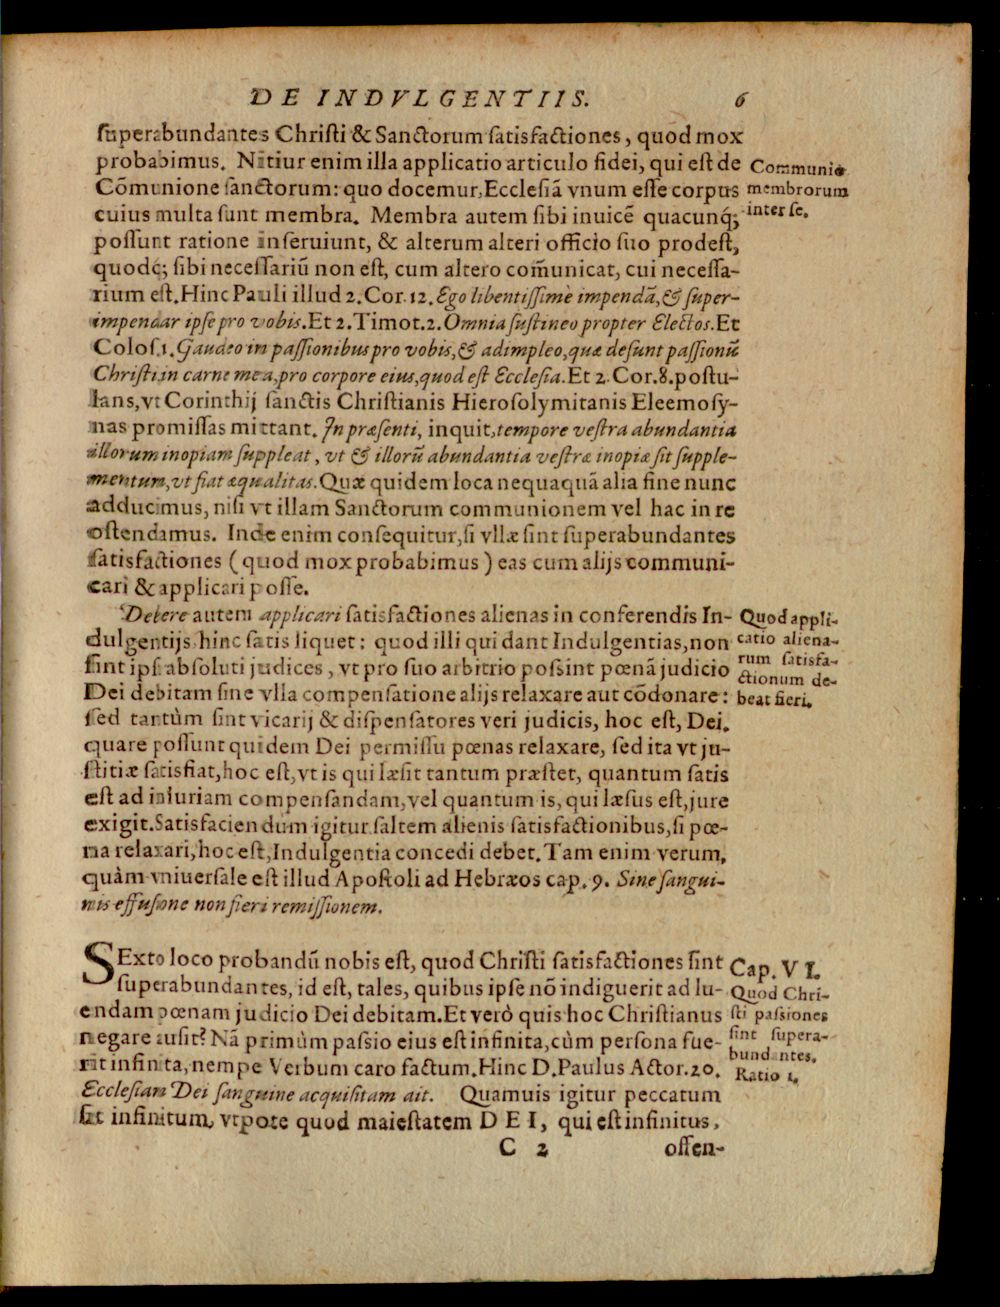 DE INDVLGENTIIS. 6
ſuperabundantes Chriſti & Sanctorum ſatisfactiones, quod mox
probabimus. Nitiur enim illa applicatio articulo fidei, qui eſt de
Cõmunione ſanctorum: quo docemur, Eccleſiã vnum eſſe corpus
cuius multa ſunt membra. Membra autem ſibi inuicẽ quacunq́;
poſſunt ratione inſeruiunt, & alterum alteri officio ſuo prodeſt,
quodq́; ſibi neceſſariũ non eſt, cum altero com̃unicat, cui neceſſa-
rium eſt. Hinc Pauli illud 2. Cor. 12. Ego libentiſſimè impendã, & ſuper-
impendar ipſe pro vobis. Et 2. Timot. 2. Omnia ſuſtineo propter Electos. Et
Coloſ. 1. Gaudeo in paſſionibus pro vobis, & adimpleo, quæ deſunt paſſionũ
Chriſti, in carne mea, pro corpore eius, quod eſt Eccleſia. Et 2. Cor. 8. poſtu-
lans, vt Corinthij ſanctis Chriſtianis Hieroſolymitanis Eleemoſy-
nas promiſſas mittant. In præſenti, inquit, tempore veſtra abundantia
illorum inopiam ſuppleat, vt & illorũ abundantia veſtræ inopiæ ſit ſupple-
mentum, vt fiat æqualitas. Quæ quidem loca nequaquã alia fine nunc
adducimus, niſi vt illam Sanctorum communionem vel hac in re
oſtendamus. Inde enim conſequitur, ſi vllæ ſint ſuperabundantes
ſatisfactiones (quod mox probabimus) eas cum alijs communi-
cari & applicari poſſe.
Communio
membrorum
inter ſe.
Debere autem applicari ſatisfactiones alienas in conferendis In-
dulgentijs hinc ſatis liquet: quod illi qui dant Indulgentias, non
ſint ipſi abſoluti judices, vt pro ſuo arbitrio poſsint pœnã judicio
Dei debitam ſine vlla compenſatione alijs relaxare aut cõdonare:
ſed tantùm ſint vicarij & diſpenſatores veri judicis, hoc eſt, Dei.
quare poſſunt quidem Dei permiſſu pœnas relaxare, ſed ita vt ju-
ſtitiæ ſatisfiat, hoc eſt, vt is qui læſit tantum præſtet, quantum ſatis
eſt ad iniuriam compenſandam, vel quantum is, qui læſus eſt, jure
exigit. Satisfaciendum igitur ſaltem alienis ſatisfactionibus, ſi pœ-
na relaxari, hoc eſt, Indulgentia concedi debet. Tam enim verum,
quàm vniuerſale eſt illud Apoſtoli ad Hebræos cap. 9. Sine ſangui-
nis effuſione non fieri remiſſionem.
Quod appli-
catio aliena-
rum ſatisfa-
ctionum de-
beat fieri.
SExto loco probandũ nobis eſt, quod Chriſti ſatisfactiones ſint
ſuperabundantes, id eſt, tales, quibus ipſe nõ indiguerit ad lu-
endam pœnam judicio Dei debitam. Et verò quis hoc Chriſtianus
negare auſit? Nã primùm paſsio eius eſt infinita, cùm perſona fue-
rit infinita, nempe Verbum caro factum. Hinc D. Paulus Actor. 20.
Eccleſiam Dei ſanguine acquiſitam ait. Quamuis igitur peccatum
ſit infinitum, vtpote quod maieſtatem DEI, qui eſt infinitus,
Cap. VI.
Quod Chri-
ſti paſsiones
ſint ſupera-
bundantes.
Ratio 1.
C 2 offen-